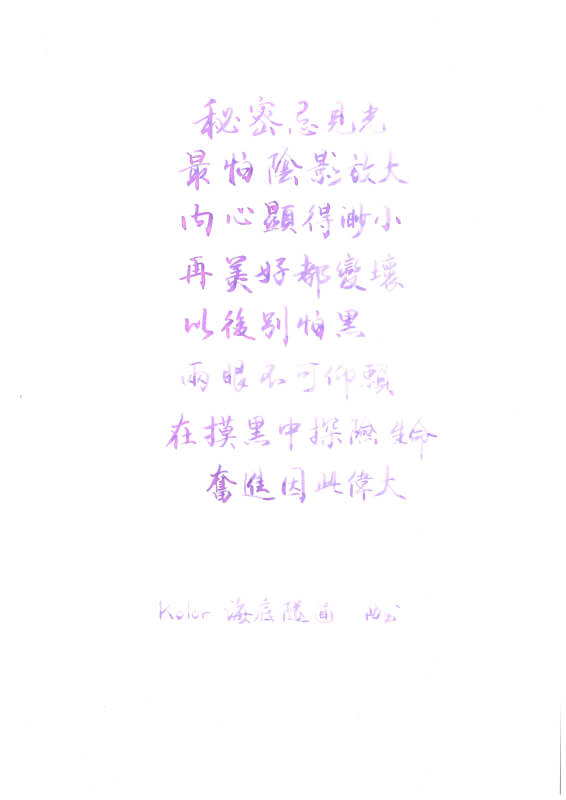 秘密忌見光
最怕陰影放大
內心顯得渺小
再美好都變壞
以後別怕黑
兩眼不可仰賴
在摸黑中探險生命
奮進因此偉大
Kolor 海底隧道